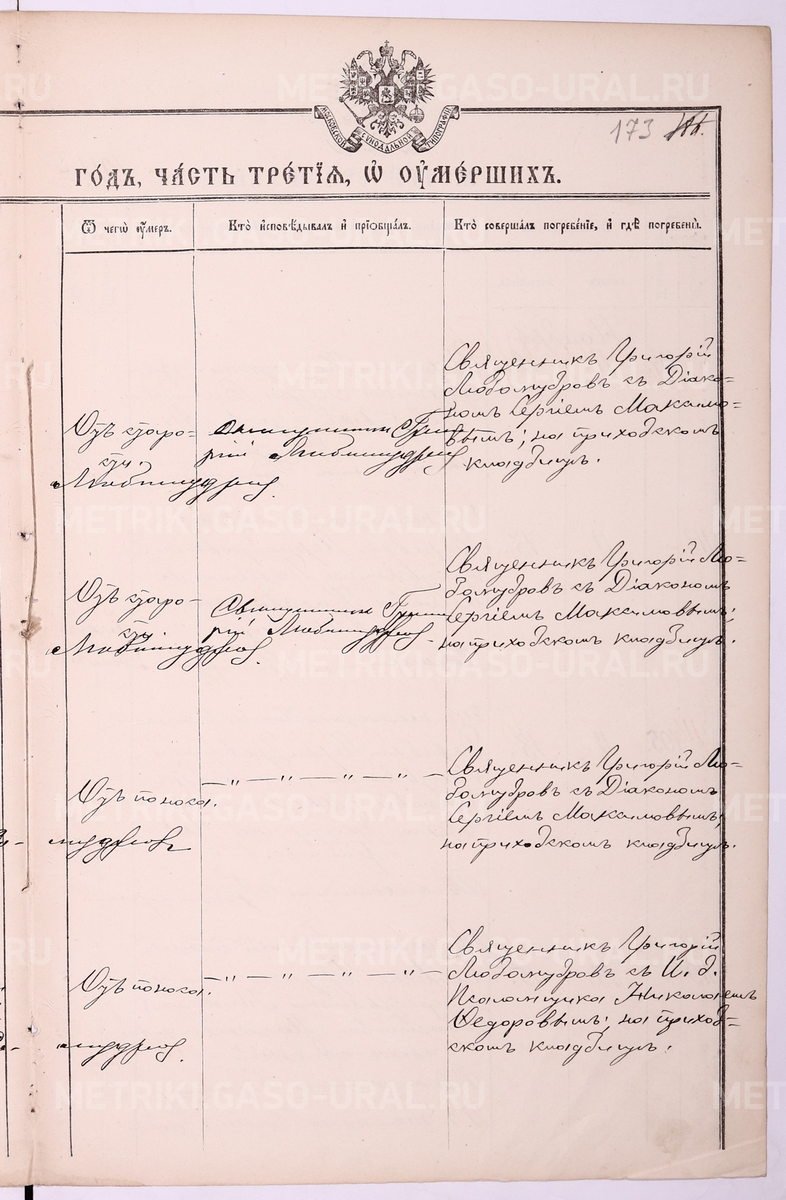 METRIKI.GASO-URAL.RU
МОСКОВСКОЙ СѴНОДАЛЬНОЙ ТИПОГРАФІИ
173
ГО́ДЪ, ЧА́СТЬ ТРЕ́ТІѦ, Ѡ҆ ОУ҆МЕ́РШИХЪ.
Ѿ чегѡ̀ ᲂу҆́меръ.
Кто̀ и҆сповѣ́дывалъ и҆ прїѻбща́лъ.
Кто̀ соверша́лъ погребе́нїе, и҆ гдѣ̀ погребены̀.
Отъ старо-
сти.
Любомудров.
Священник Григо-
рій Любомудров
Священникъ Григорій
Любомудровъ съ Діако-
номъ Сергіемъ Максимо-
вымъ; на приходскомъ
кладбищѣ.
Отъ старо-
сти.
Любомудров.
Священник Григо-
рій Любомудров
Священникъ Григорій Лю-
бомудровъ съ Діакономъ
Сергіемъ Максимовымъ;
на приходскомъ кладбищѣ.
Отъ поноса.
— „ — „ — „ — „ —
мудров
Священникъ Григорій Лю-
бомудровъ съ Діакономъ
Сергіемъ Максимовымъ;
на приходскомъ кладбищѣ.
Отъ поноса.
— „ — „ — „ — „ —
мудров.
Священникъ Григорій
Любомудровъ съ И. д.
Псаломщика Николаемъ
Федоровымъ; на приход-
скомъ кладбищѣ.